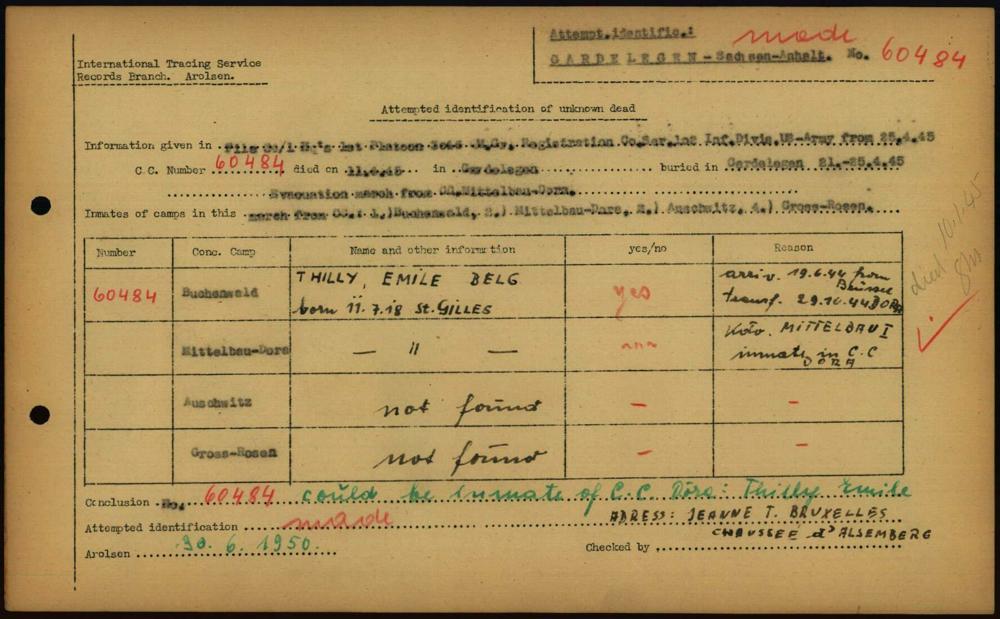 Attempt.identific.: made
GARDELEGEN-Sachsen-Anhalt. No. 60484
International Tracing Service
Records Branch. Arolsen.
Attempted identification of unknown dead
Information given in File 1st Platoon Registration Co. Inf.Divis.US-Army from 25.4.45
C.C. Number 60484 died on 11.4.45 in Gardelegen buried in Gardelegen 21.-25.4.45
Evacuation march from CC.Mittelbau-Dora.
Inmates of camps in this march from CC.: 1.)Buchenwald, 2.) Mittelbau-Dora, 3.) Auschwitz, 4.) Gross-Rosen.
Number Conc. Camp Name and other information yes/no Reason
60484 Buchenwald THILLY, EMILE BELG yes arriv. 19.6.44 from
born 11.7.18 St. GILLES Brüssel
transf. 29.10.44 DORA
Mittelbau-Dora — " — Kdo. MITTELBAU I
inmate in C.C
DORA
Auschwitz not found — —
Gross-Rosen not found — —
died 10.1.45
Conclusion No. 60484 could be inmate of C.C. Dora: Thilly Emile
Attempted identification made ADRESS: JEANNE T. BRUXELLES
CHAUSSEE d'ALSEMBERG
Arolsen 30.6.1950. Checked by